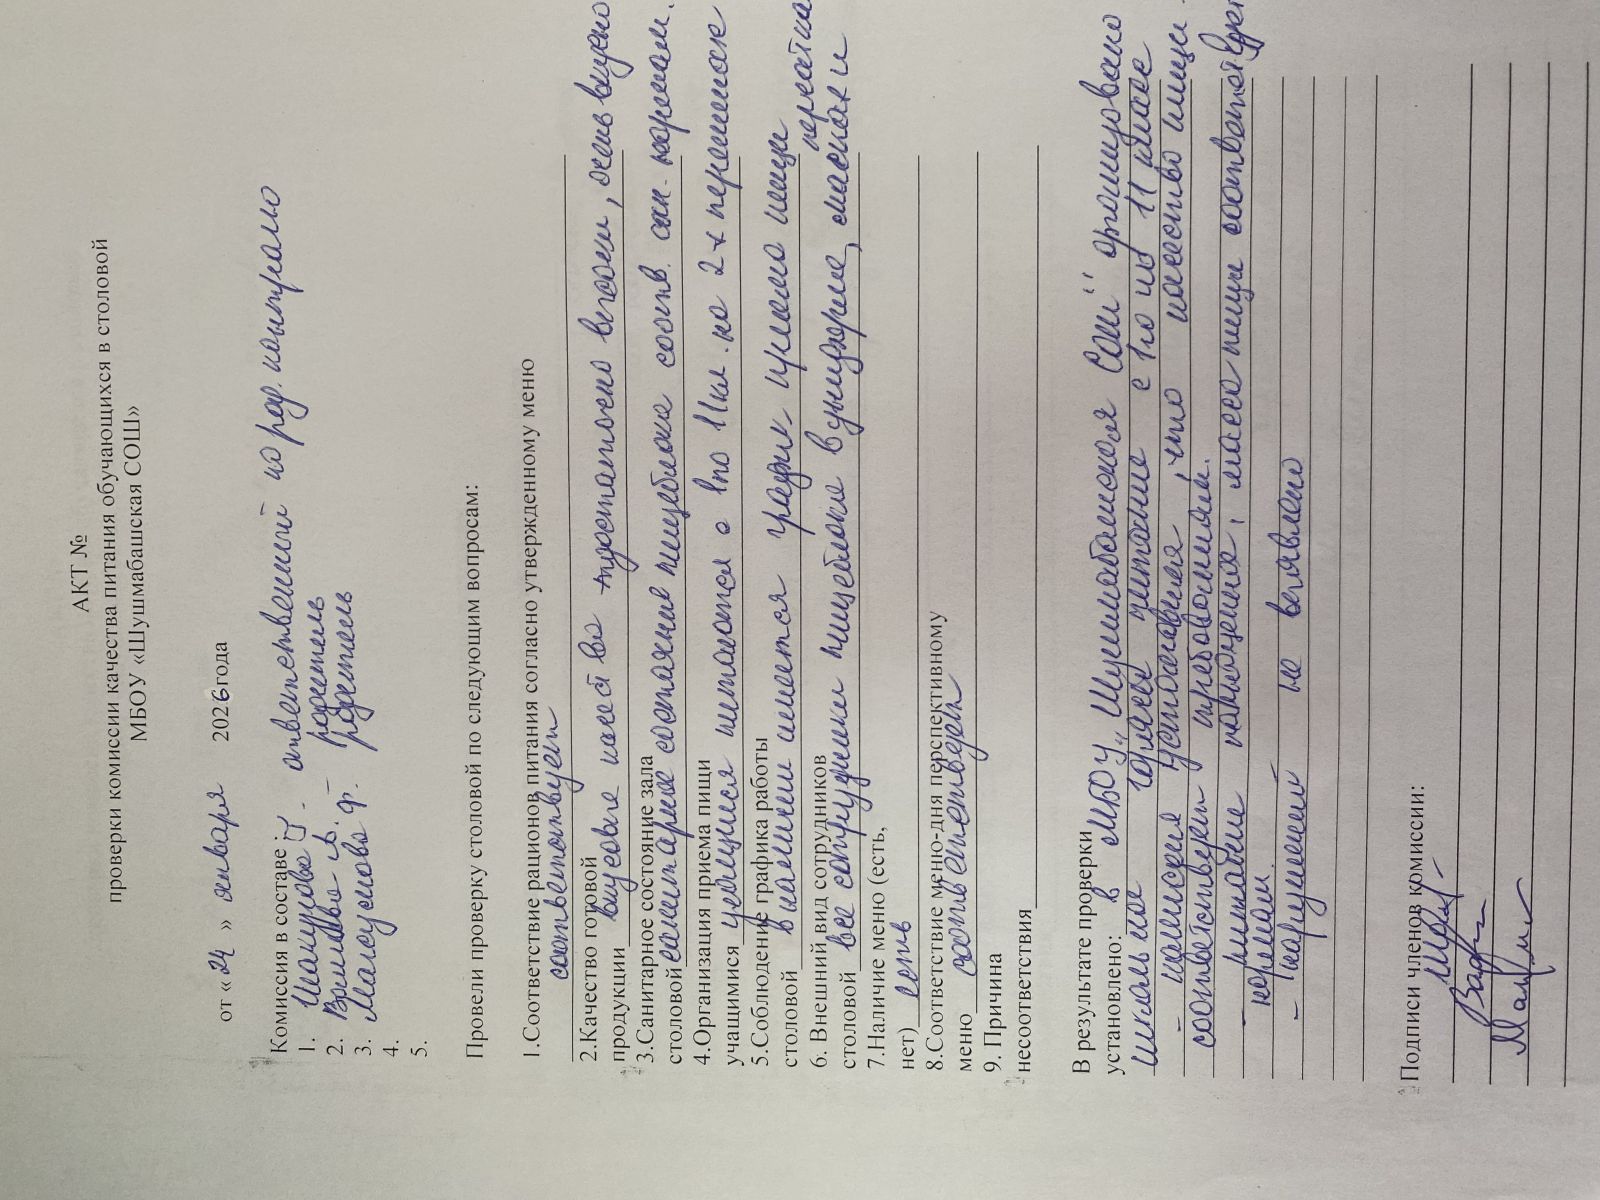 АКТ №
проверки комиссии качества питания обучающихся в столовой
МБОУ «Шушмабашская СОШ»
от « 24 » января 2026 года
Комиссия в составе:
1. - ответственный по род. контролю
2. родитель
3. родитель
4.
5.
Провели проверку столовой по следующим вопросам:
1.Соответствие рационов питания согласно утвержденному меню
соответствует
2.Качество готовой
продукции вкусовые достаточно высокие, очень вкусно
3.Санитарное состояние зала
столовой санитарное состояние пищеблока соотв. сан. нормам.
4.Организация приема пищи
учащимися учащиеся питаются с 1 по 11 кл. на 2-х переменах
5.Соблюдение графика работы
столовой в наличии имеется график приема пищи
6. Внешний вид сотрудников
столовой все сотрудники пищеблока в униформе, масках и перчатках
7.Наличие меню (есть,
нет) есть
8.Соответствие меню-дня перспективному
меню соответствует
9. Причина
несоответствия
В результате проверки
установлено: в МБОУ „Шушмабашская СОШ" организовано
школьное горячее питание с 1 по 11 класс
- комиссия установила, что качество пищи
соответствует требованиям.
- питание полноценное, масса пищи соответствует
нормам.
- нарушений не выявлено
Подписи членов комиссии: